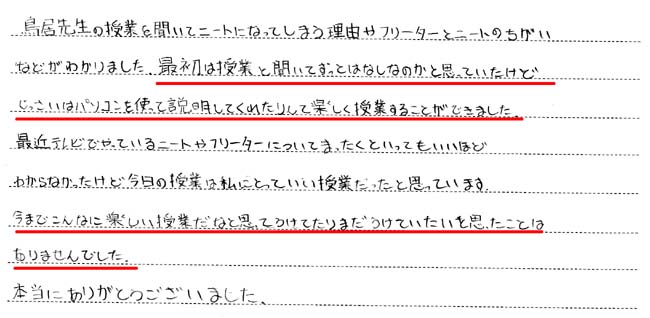 鳥居先生の授業を聞いてニートになってしまう理由やフリーターとニートのちがい
などがわかりました。最初は授業と聞いてずっとはなしなのかと思っていたけど
じっさいはパソコンを使って説明してくれたりして楽しく授業することができました。
最近テレビでやっているニートやフリーターについてまったくといってもいいほど
わからなかったけど今日の授業は私にとっていい授業だったと思っています。
今までこんなに楽しい授業だなと思ってうけてたりまだうけていたいを思ったことは
ありませんでした。
本当にありがとうございました。